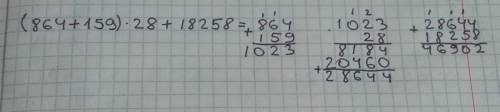 (864+159)·28+18258=
1 1
864
+159
1023
1 2
·1023
28
8184
+20460
28644
1 1 1
+28644
18258
46902